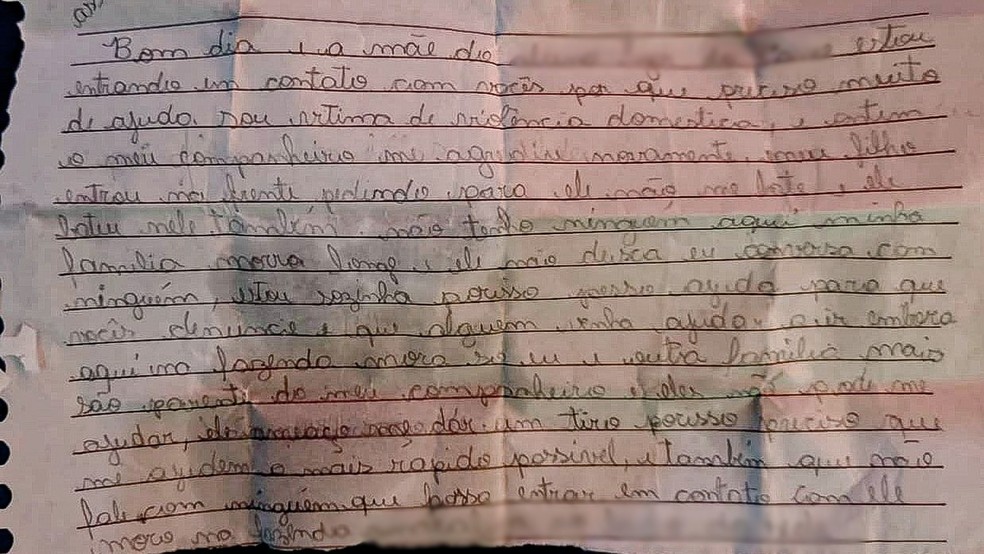 Bom dia e a mãe do estou
entrando em contato com vocês por que preciso muito
de ajuda. sou vitima de violência domestica, e ontem
o meu companheiro me agrediu novamente. meu filho
entrou na frente pedindo para ele não me bate, ele
bateu nele também. não tenho ninguém aqui minha
família morra longe, e ele não deixa eu conversa com
ninguém, estou sozinha posso ajuda para que
vocês denuncie e que alguem venha ajuda a ir embora
aqui na fazenda mora so eu e outra família mais
são parenti do meu companheiro e eles não pode me
ajudar, ele dár um tiro posso preciso que
me ajudem o mais rápido possivel, e também que não
fale com ninguém que possa entrar em contato com ele
moro na fazenda